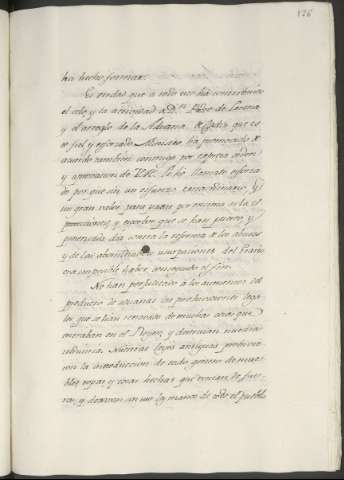 126
ha hecho formar.
Es verdad que a todo eso ha contribuido
el celo y la actividad de Dn. Pedro de Lerena
y el arreglo de la Aduana de Cadiz que es
te fiel y esforzado Ministro ha promovido
quando tambien consigo por expresa orden
y aprovacion de V.M. Le ha llamado esforza
do por que sin un esfuerzo extraordinario, y
un gran valor para pasar por encima de las
persecuciones, y que se han puesto, y
ponen cada dia contra la reforma de los abusos
y de las y usurpaciones del Erario
era imposible haber conseguido el fin.
No han perjudicado a los aumentos del
producto de aduanas las prohibiciones lega
les que se han renovado de muchas cosas que
entraban en el Reyno, y destruian nuestra
industria. Nuestras leyes antiguas prohivie
ron la introduccion de todo genero de mue
bles, ropas y cosas hechas que venian de fue
ra, y dexavan sin uso las manos de todo el pueblo